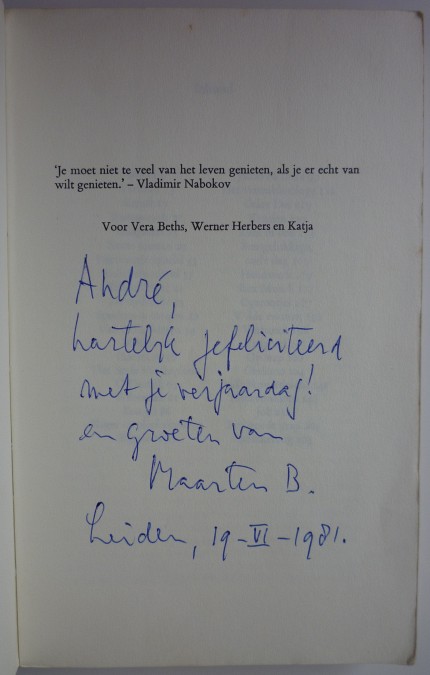 'Je moet niet te veel van het leven genieten, als je er echt van
wilt genieten.' – Vladimir Nabokov
Voor Vera Beths, Werner Herbers en Katja
André,
hartelijk gefeliciteerd
met je verjaardag!
en groeten van
Maarten B.
Leiden, 19-VI-1981.